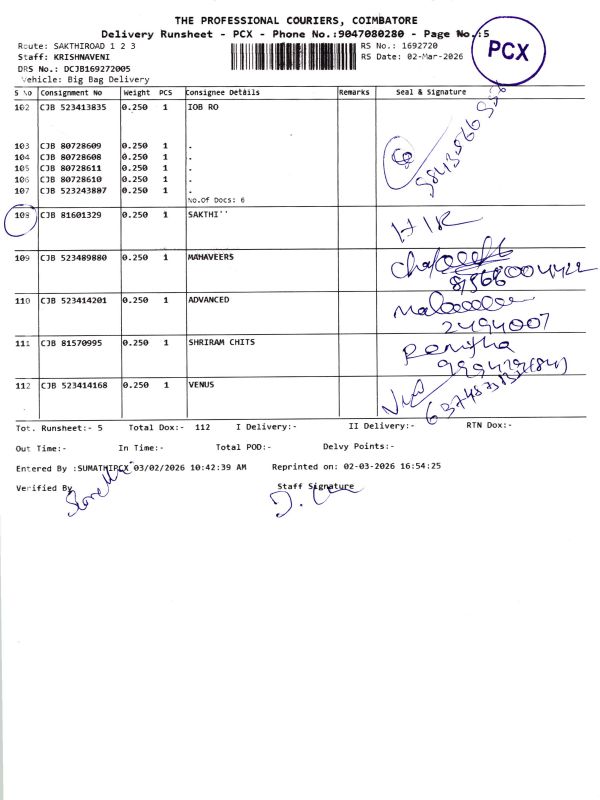 THE PROFESSIONAL COURIERS, COIMBATORE
Delivery Runsheet - PCX - Phone No.:9047080280 - Page No.:5
Route: SAKTHIROAD 1 2 3
RS No.: 1692720
PCX
Staff: KRISHNAVENI
RS Date: 02-Mar-2026
DRS No.: DCJB169272005
Vehicle: Big Bag Delivery
S No Consignment No Weight PCS Consignee Details Remarks Seal & Signature
102 CJB 523413835 0.250 1 IOB RO
103 CJB 80728609 0.250 1 .
104 CJB 80728608 0.250 1 .
105 CJB 80728611 0.250 1 .
106 CJB 80728610 0.250 1 .
107 CJB 523243807 0.250 1 .
No.Of Docs: 6
108 CJB 81601329 0.250 1 SAKTHI''
109 CJB 523489880 0.250 1 MAHAVEERS
110 CJB 523414201 0.250 1 ADVANCED
2494007
111 CJB 81570995 0.250 1 SHRIRAM CHITS
112 CJB 523414168 0.250 1 VENUS
Tot. Runsheet:- 5 Total Dox:- 112 I Delivery:- II Delivery:- RTN Dox:-
Out Time:- In Time:- Total POD:- Delvy Points:-
Entered By :SUMATHIPCX 03/02/2026 10:42:39 AM Reprinted on: 02-03-2026 16:54:25
Verified By Staff Signature